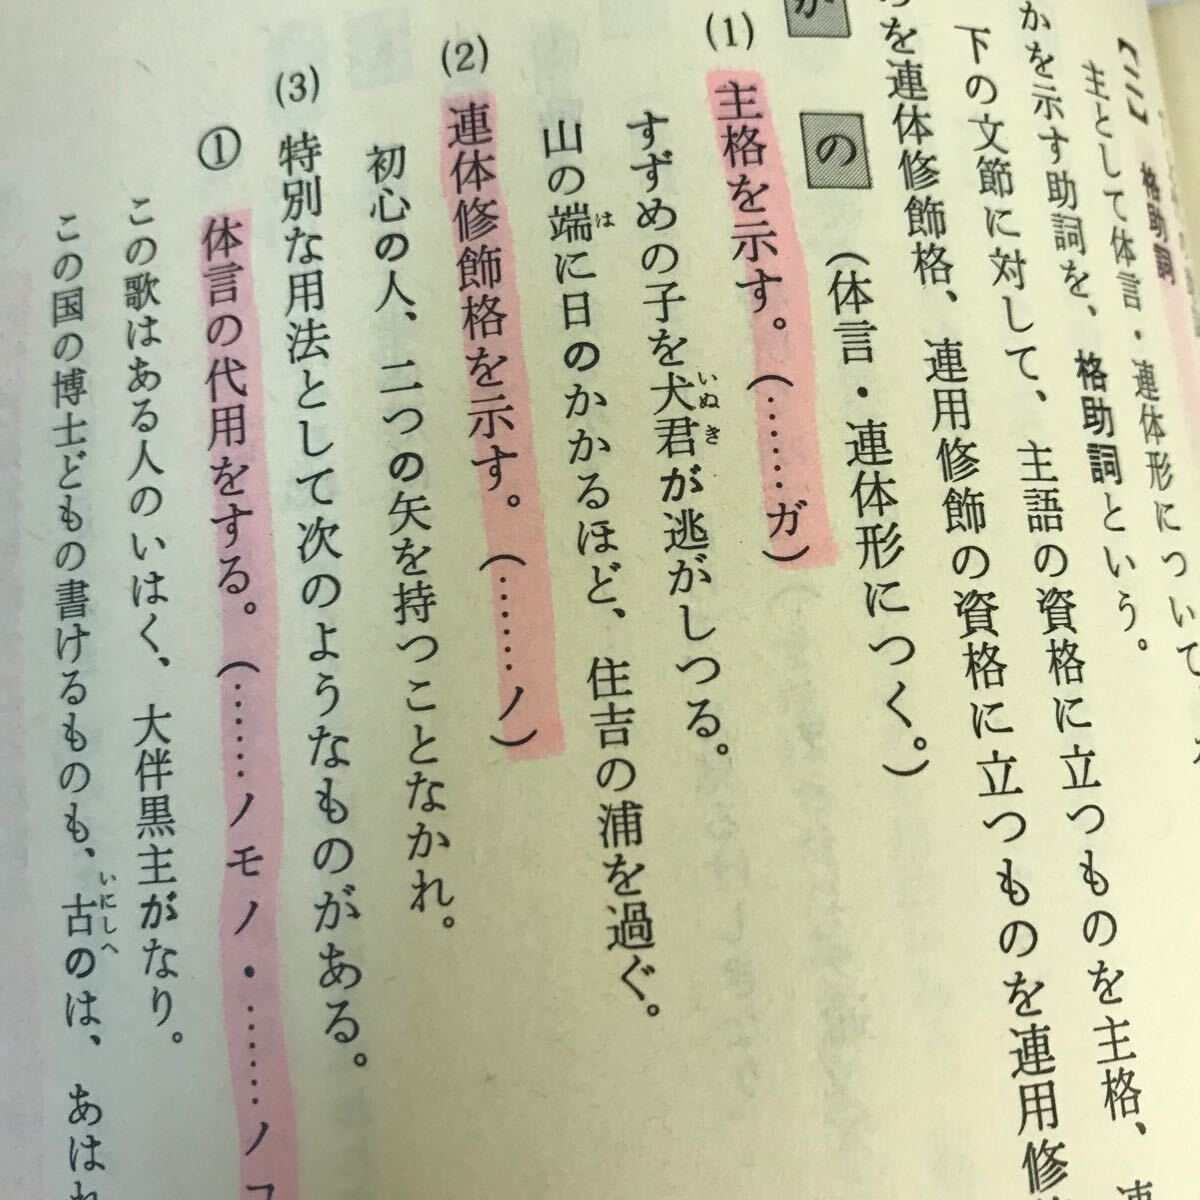 【二】 格助詞
主として体言・連体形について
かを示す助詞を、格助詞という。
下の文節に対して、主語の資格に立つものを主格、
を連体修飾格、連用修飾の資格に立つものを連用修
が
の (体言・連体形につく。)
(1) 主格を示す。(……ガ)
すずめの子を犬君が逃がしつる。
いぬき
山の端に日のかかるほど、住吉の浦を過ぐ。
は
(2) 連体修飾格を示す。(……ノ)
初心の人、二つの矢を持つことなかれ。
(3) 特別な用法として次のようなものがある。
① 体言の代用をする。(……ノモノ・……ノコ
この歌はある人のいはく、大伴黒主がなり。
この国の博士どもの書けるものも、古のは、あはれ
いにしへ